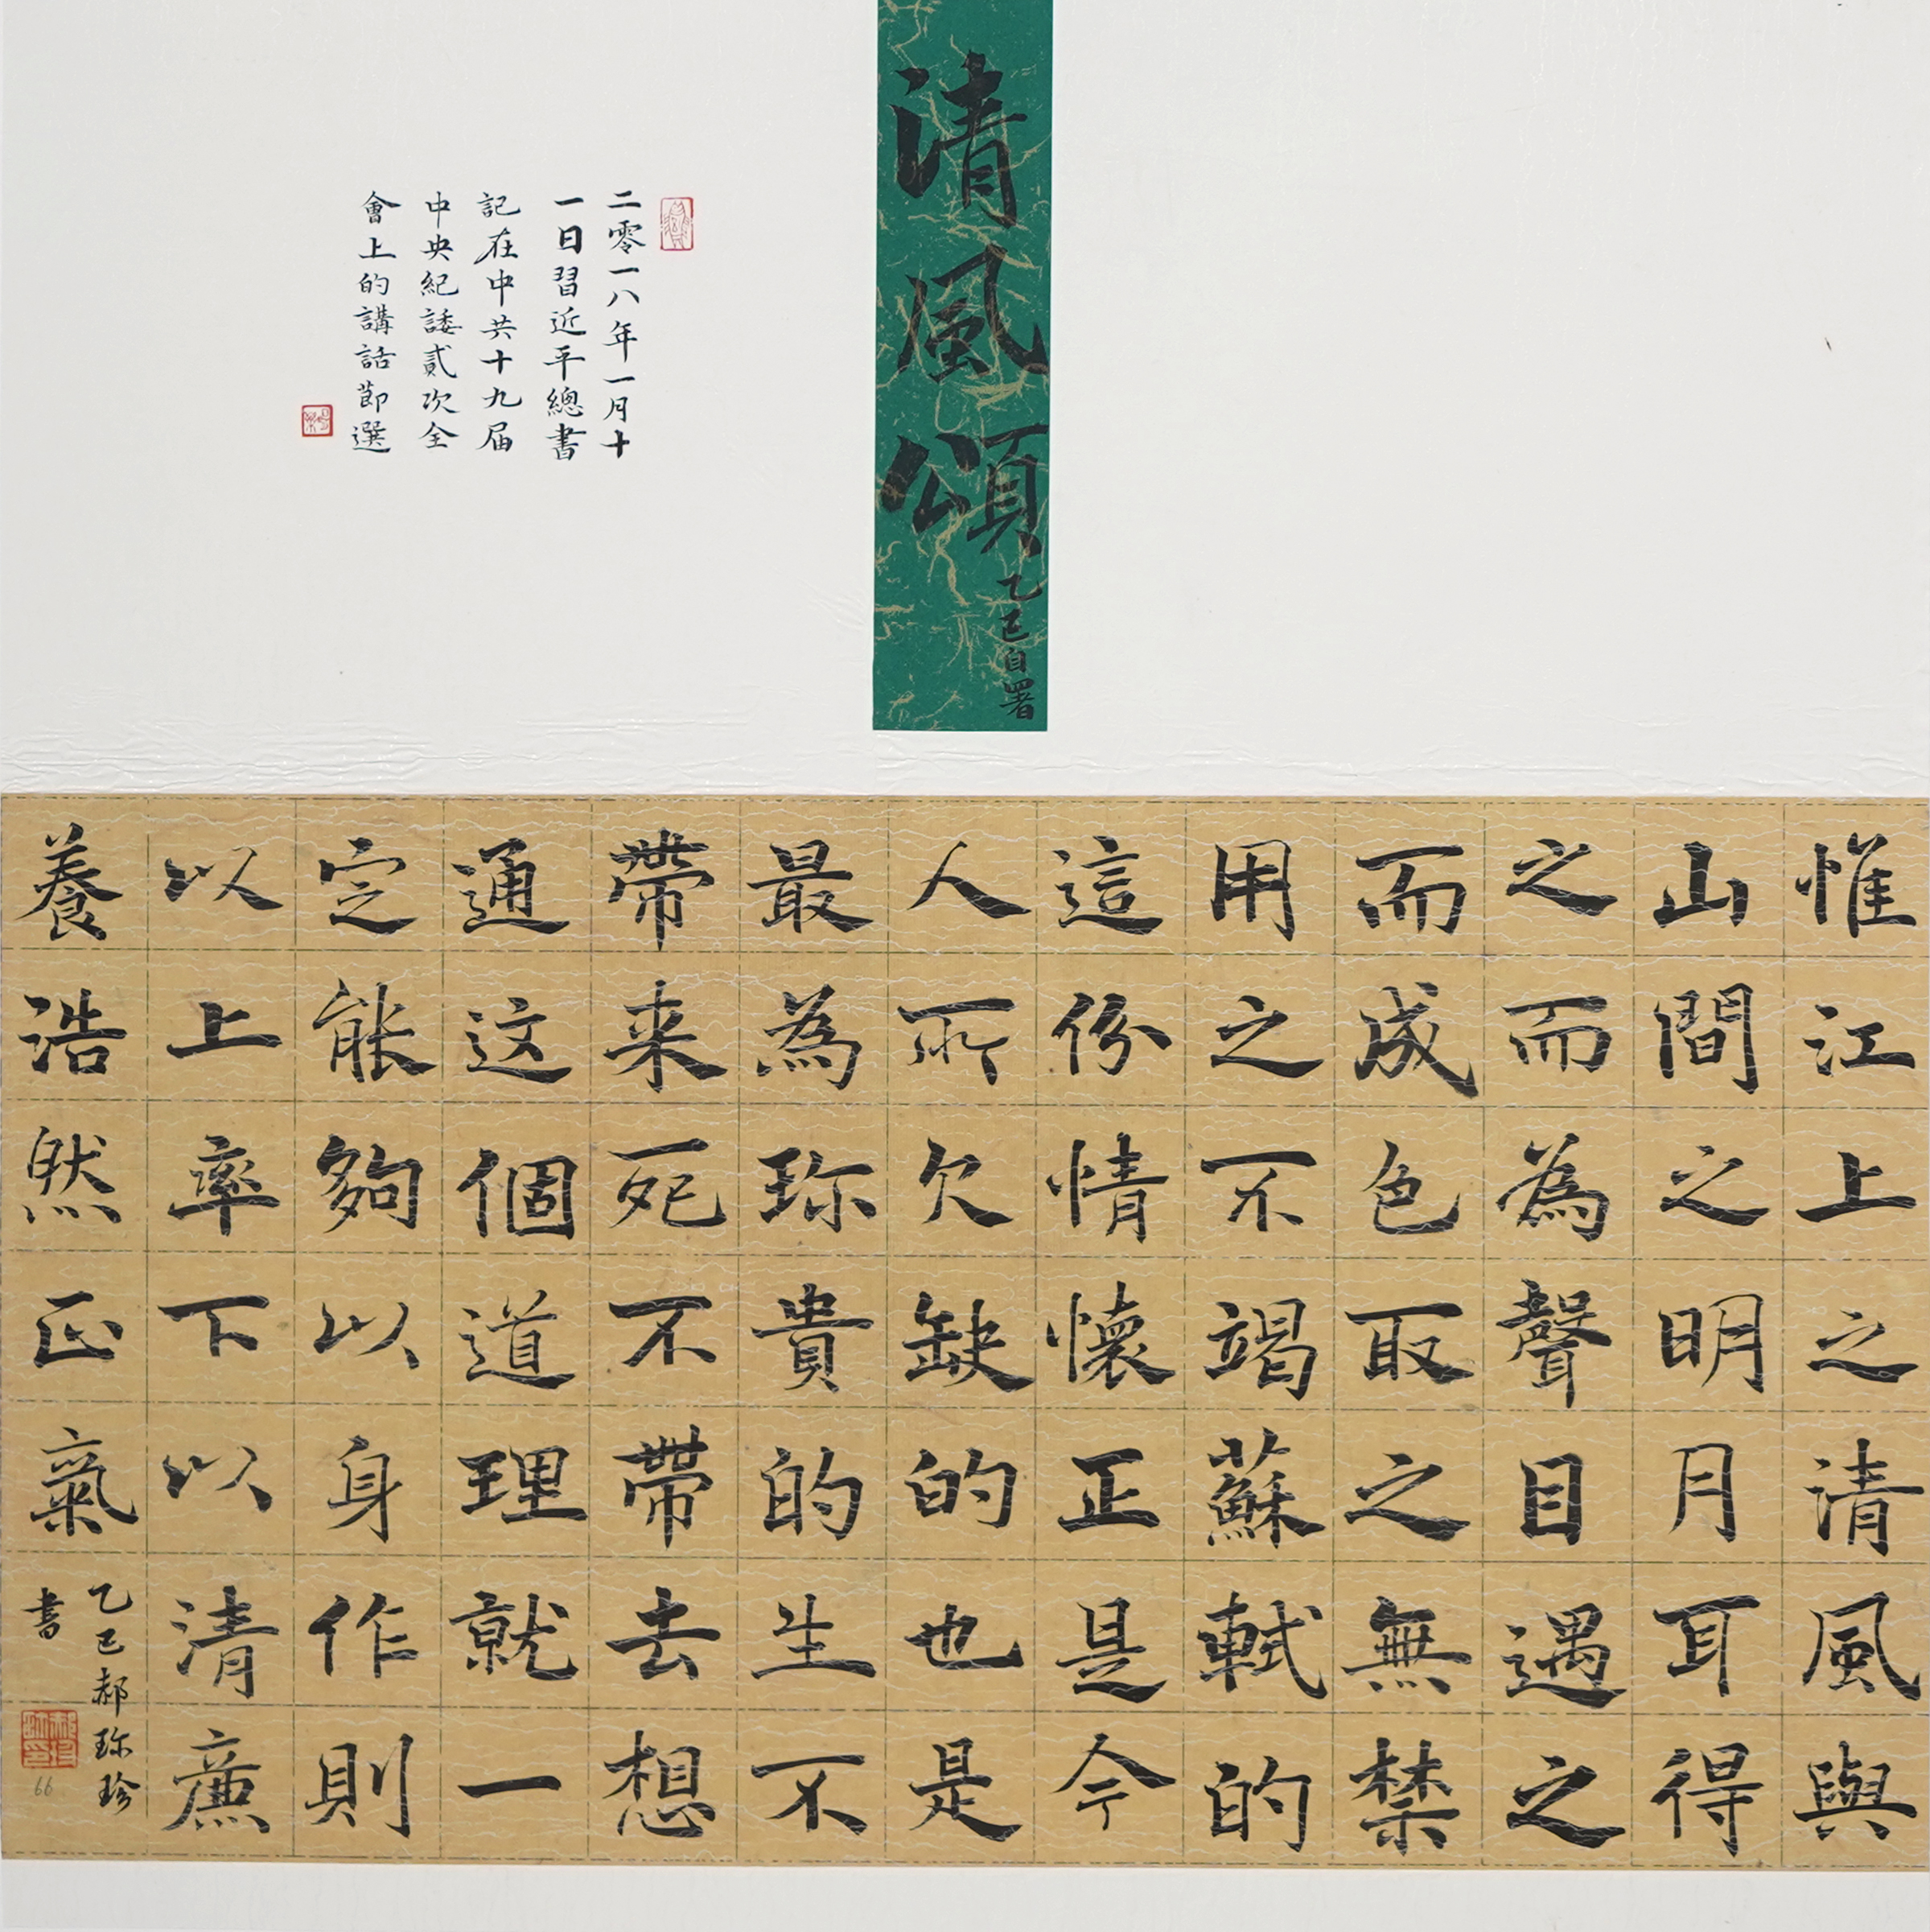 清風頌
乙巳自署
二零一八年一月十
一日習近平總書
記在中共十九届
中央紀諉貳次全
會上的講話節選
惟江上之清風與
山間之明月耳得
之而為聲目遇之
而成色取之無禁
用之不竭蘇軾的
這份情懷正是今
人所欠缺的也是
最為珎貴的生不
帶来死不帶去想
通这個道理就一
定能夠以身作則
以上率下以清廉
養浩然正氣
乙巳郝珎珍
書
66